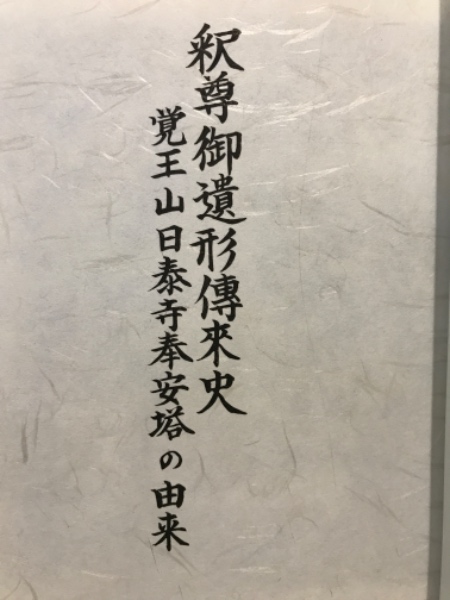 釈尊御遺形傳来史
覚王山日泰寺奉安塔の由来